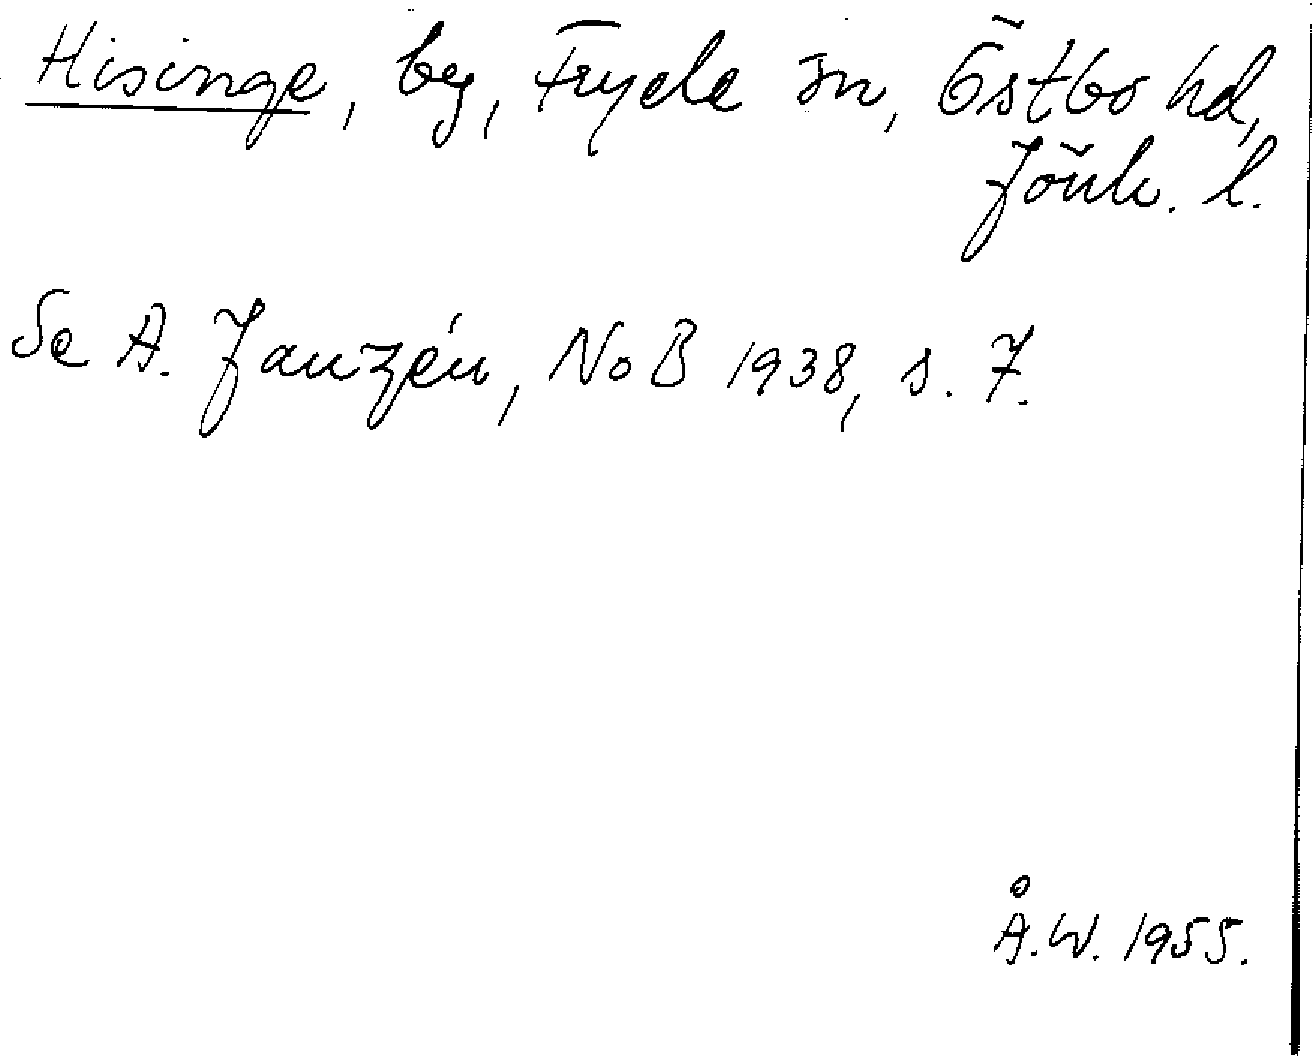 Hisinge, by, Fryele sn, Östbo hd,
Jönk. l.
Se A. Janzén, NoB 1938, s. 7.
Å.W. 1955.